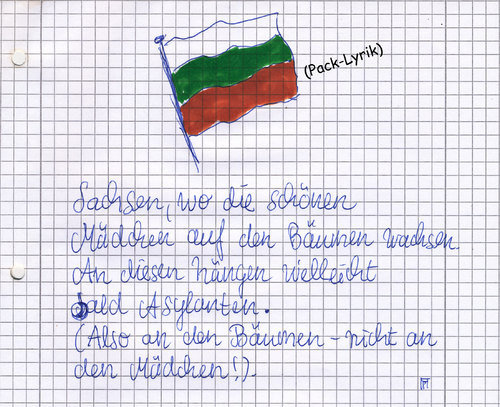 (Pack-Lyrik)
Sachsen, wo die schönen
Mädchen auf den Bäumen wachsen
An diesen hängen vielleicht
bald Asylanten.
(Also an den Bäumen - nicht an
den Mädchen!).